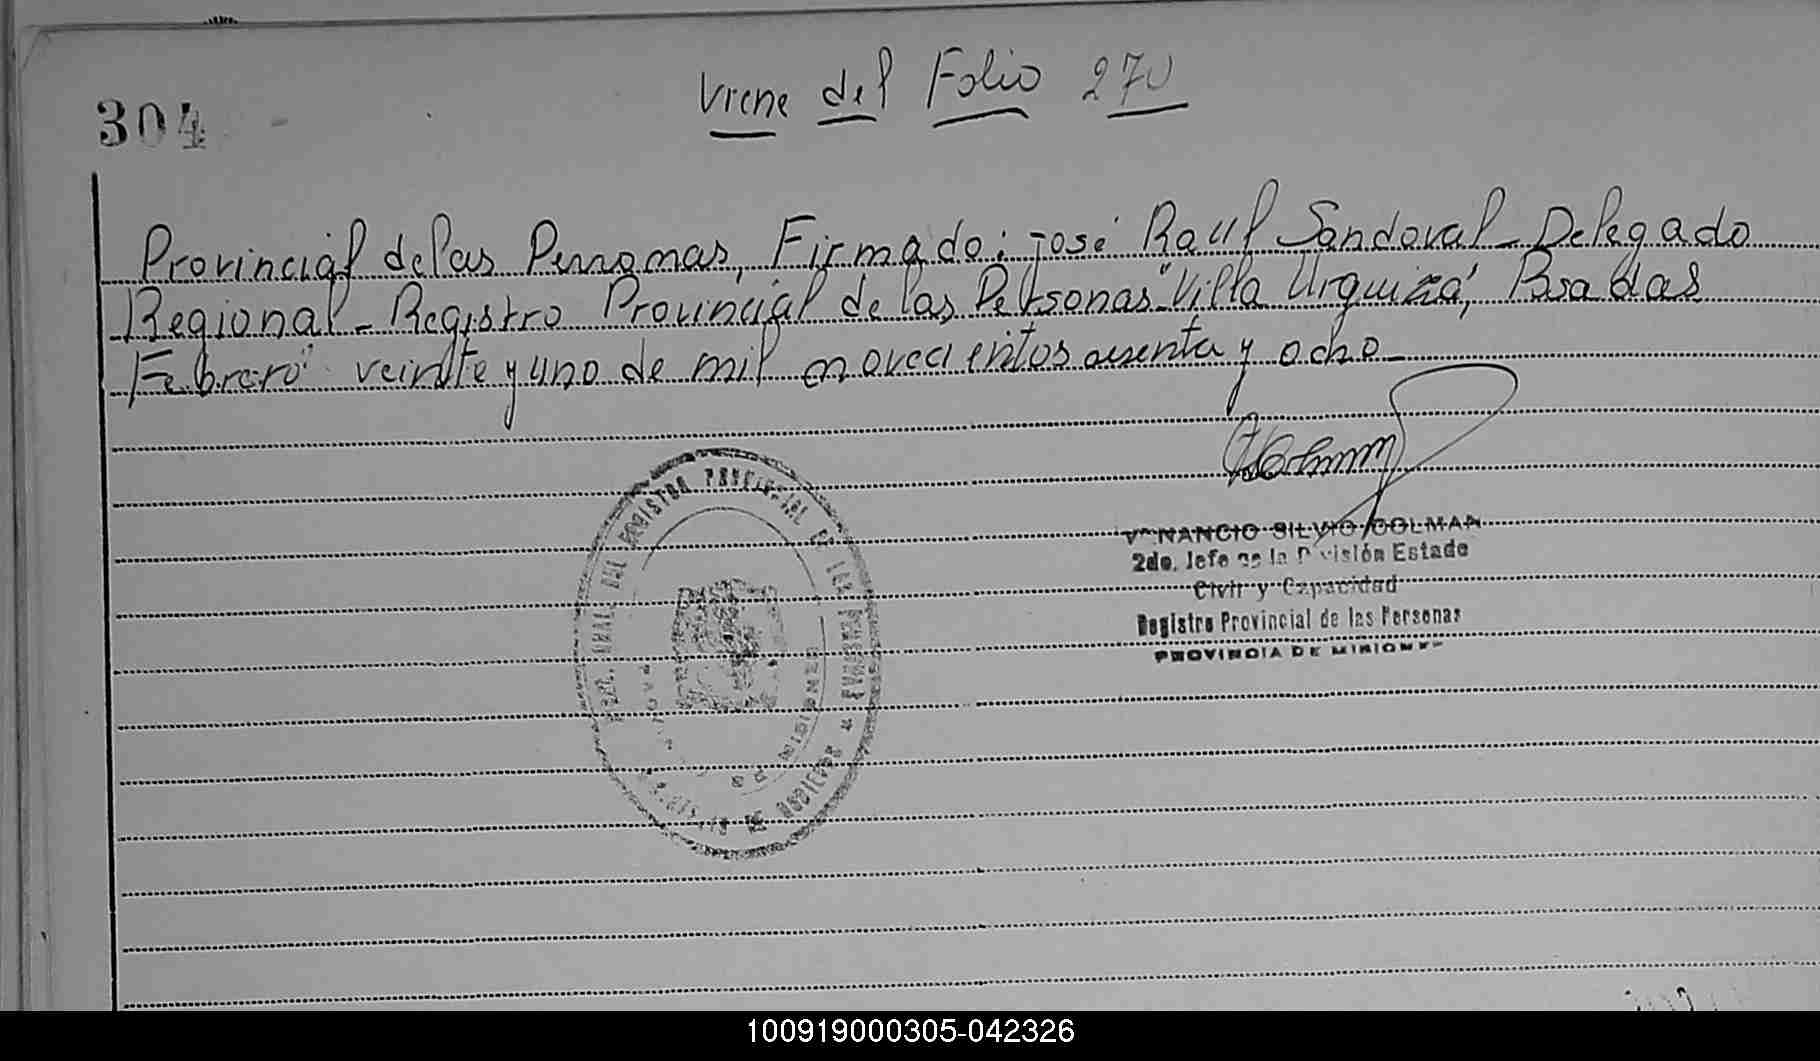 304
Viene del Folio 270
Provincial de las Personas, Firmado: José Raúl Sandoval - Delegado
Regional - Registro Provincial de las Personas "Villa Urquiza", Posadas
Febrero veinte y uno de mil novecientos ochenta y ocho -
VENANCIO SILVIO COLMAN
2do. Jefe de la División Estado
Civil y Capacidad
Registro Provincial de las Personas
PROVINCIA DE MISIONES
REGISTRO PROVINCIAL DE LAS PERSONAS
MISIONES
100919000305-042326